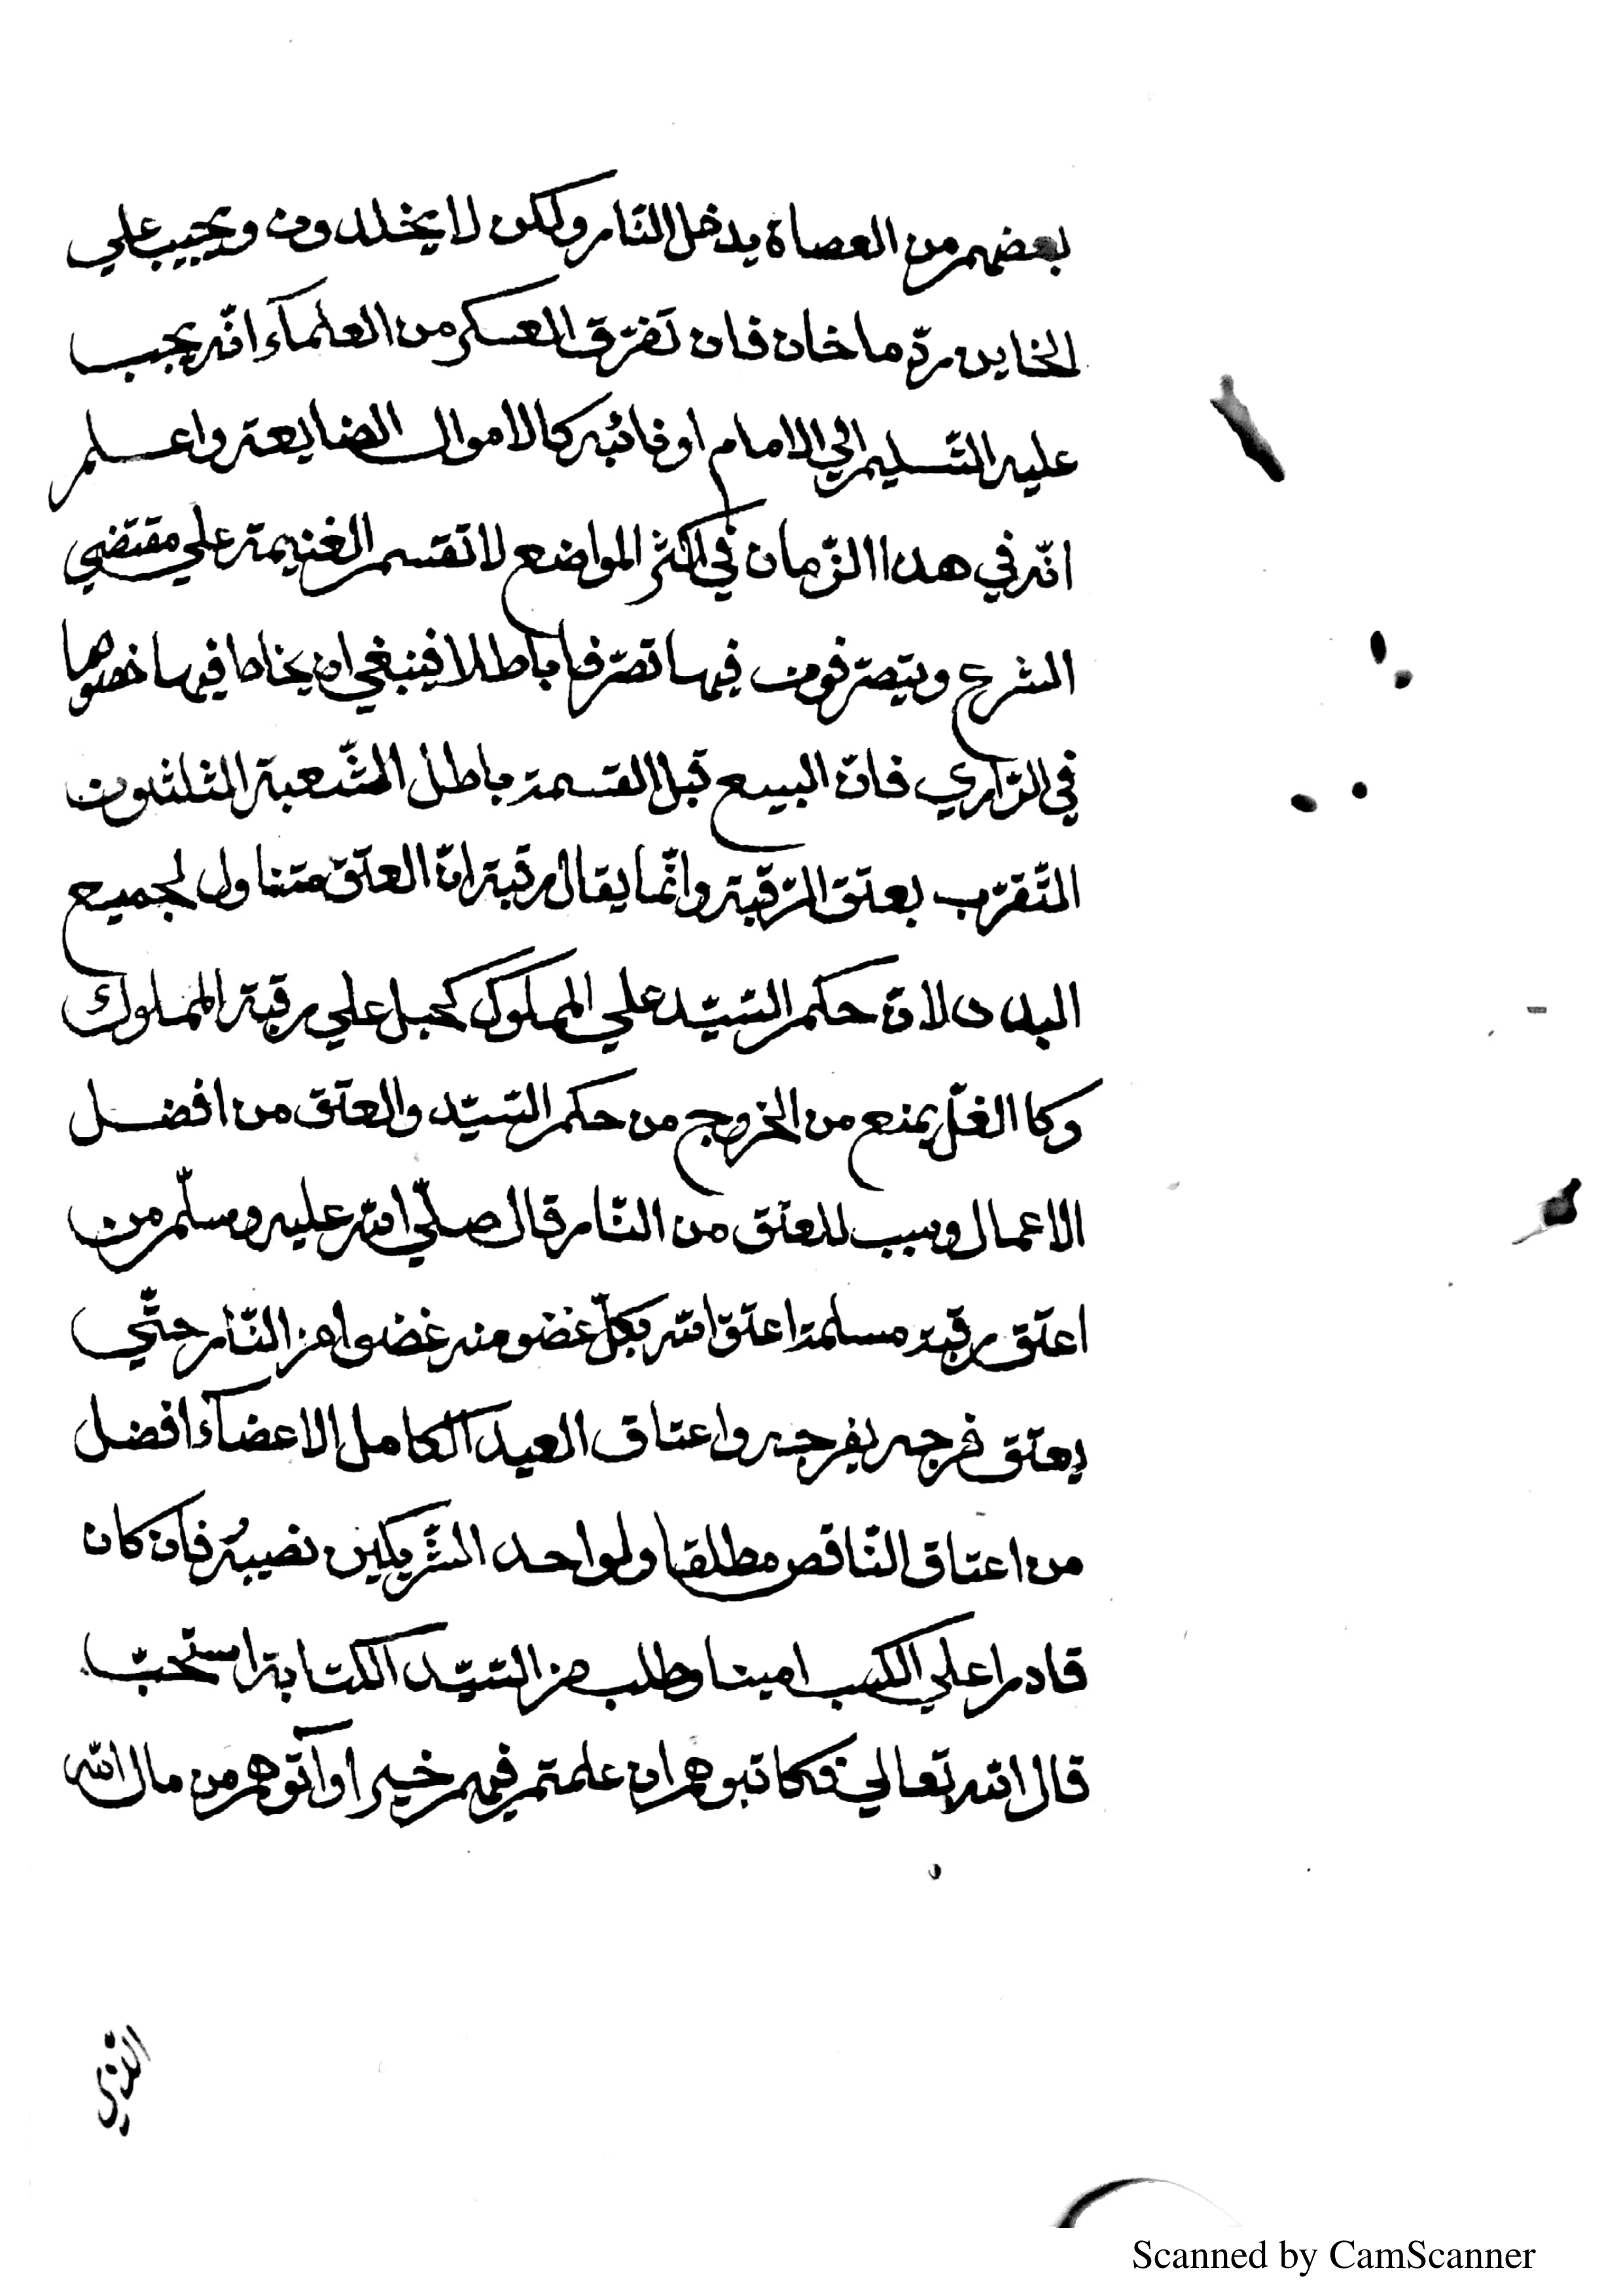 بعضهم من العصاة يدخل النّار ولكن لا يخلدون ويجيب علي
الخاين ردّ ما خان فان تفرّق العسكر من العلمآء انّه يجب
عليه التّسليم الي الامام او نائبه كالاموال الضايعة واعلم
انّه في هدا الزّمان في اكثر المواضع لا تقسم الغنيمة علي مقتضي
الشرع ويتصرفون فيها تصرّفا باطلا فينبغي ان يخاطا فيها خصوصا
في الزّاري فانّ البيع قبل القسمة باطل الشّعبة الثلثون
التّقرّب بعتق الرّقبة وانّما يقال رقبة انّ العتق متناول لجميع
البدن لانّ حكم السّيّد علي المملوك كحبل علي رقبة المملوك
وكا الغلّ يمنع من الخروج من حكم السّيّد والعتق من افضل
الاعمال وسبب للعتق من النّار قال صلّي الله عليه وسلّم من
اعتق رقبة مسلمة اعتق الله بكلّ غضو منه غضوا من النّار حتّي
يعتق فرجه بفرجه واعتاق العبد الكامل الاعضآء افضل
من اعتاق النّاقص مطلقا ولو احد الشّريكين نصيبُه فان كان
قادرا علي الكسب امينا وطلب من السّيّد الكتابة استحبّ
قال الله تعالي فكاتبوهم ان علمتم فيهم خيرا وآتوهم من مال الله
الّذي
Scanned by CamScanner